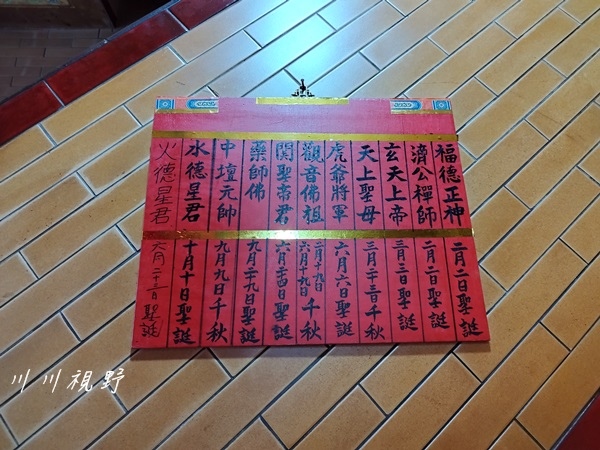 福德正神 二月二日聖誕
濟公禪師 二月二日聖誕
玄天上帝 三月三日聖誕
天上聖母 三月二十三日千秋
虎爺將軍 六月六日聖誕
觀音佛祖 二月十九日 六月十九日 千秋
關聖帝君 六月二十四日聖誕
藥師佛 九月二十九日聖誕
中壇元帥 九月九日千秋
水德星君 十月十日聖誕
火德星君 六月二十三日聖誕
川川視野